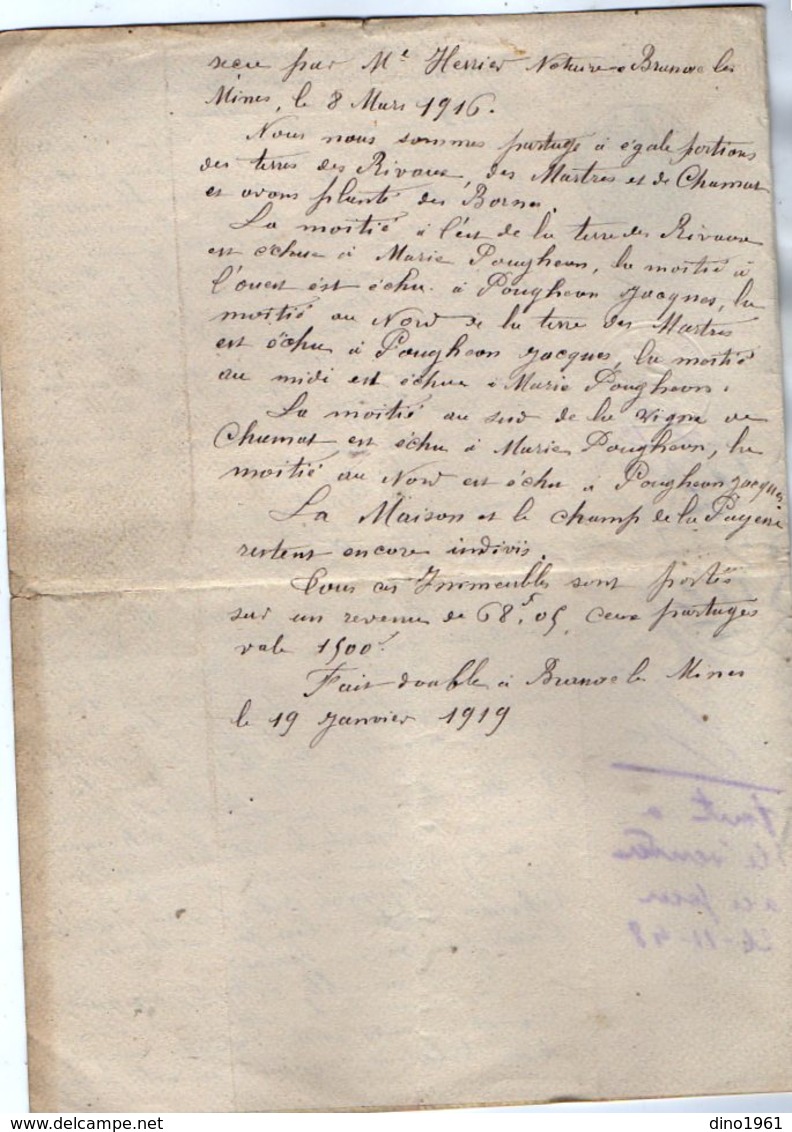 reçu par Me Herrier Notaire à Brassac les
Mines, le 8 Mars 1916.
Nous nous sommes partagé à égale portions
des terres des Rivaux, des Martres et de Chamat
et avons planté des Bornes.
La moitié à l'est de la terre des Rivaux
est échue à Marie Pougheon, la moitié à
l'ouest est échu à Pougheon Jacques, la
moitié au Nord de la terre des Martres
est échu à Pougheon Jacques, la moitié
au midi est échue à Marie Pougheon.
La moitié au sud de la vigne de
Chamat est échu à Marie Pougheon, la
moitié au Nord est échu à Pougheon Jacques.
La Maison et le champ de la
restent encore indivis.
Tous ces Immeubles sont portés
sur un revenu de 68f,05, ceux partagés
vale 1500f.
Fait double à Brassac les Mines
le 19 Janvier 1919
dino1961